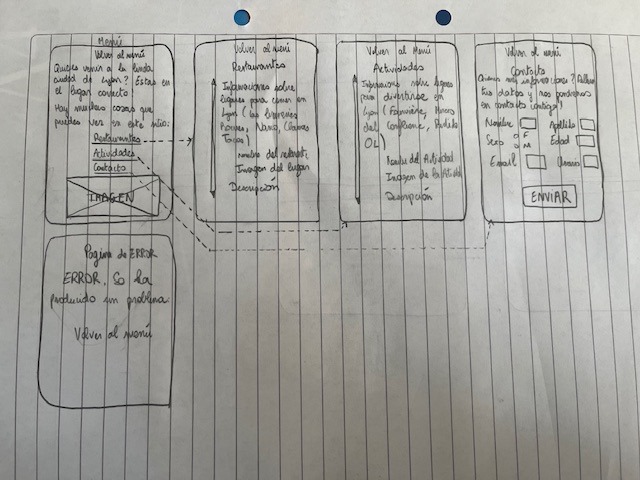 Menú
Volver al menú
Quieres venir a la linda
ciudad de Lyon? Estas en
el lugar correcto!
Hay muchas cosas que
puedes ver en este sitio:
Restaurantes
Actividades
Contacto
IMAGEN
Volver al menú
Restaurantes
Informaciones sobre
lugares para comer en
Lyon (
Tacos)
nombre del
Imagen del lugar
Descripción
Volver al Menú
Actividades
Informaciones sobre lugares
para divertirse en
Lyon (Fourvière,
del Confluence,
OL)
Nombre del Actividad
Imagen de la Actividad
Descripción
Volver al menú
Contacto
Quieres más informaciones?
tus datos y nos pondremos
en contacto contigo!
Nombre Apellido
Sexo F M Edad
Email
ENVIAR
Pagina de ERROR
ERROR. Se ha
producido un problema
Volver al menú